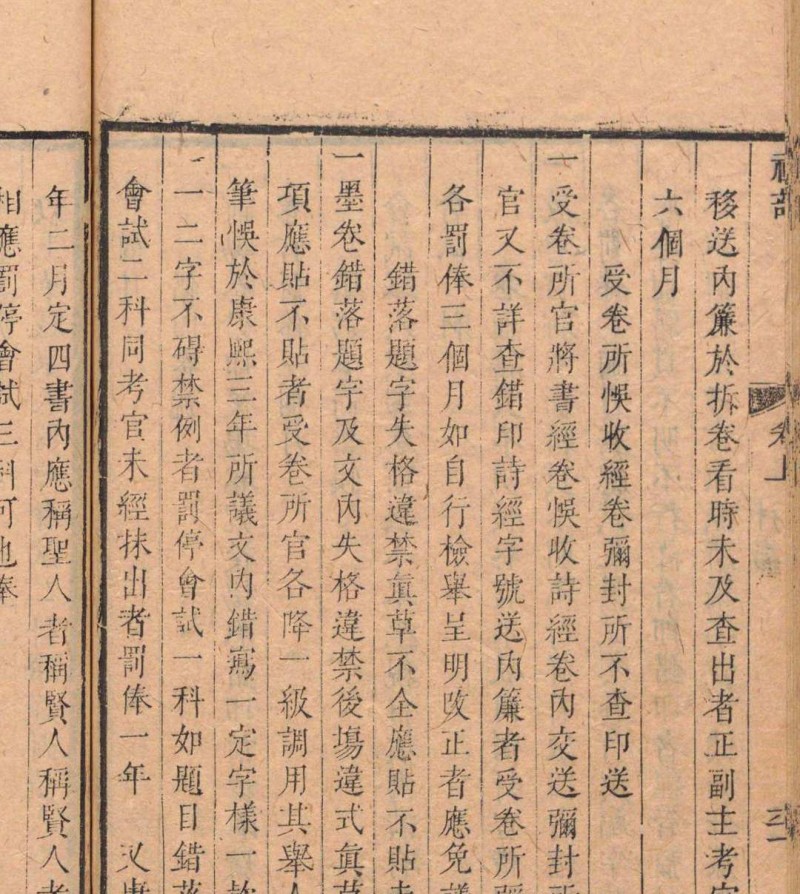 卷上
移送內簾於拆卷看時未及查出者正副主考官
六個月
受卷所悞收經卷彌封所不查印送
一受卷所官將書經卷悞收詩經卷內交送彌封所
官又不詳查錯印詩經字號送內簾者受卷所
各罰俸三個月如自行檢舉呈明改正者應免議
錯落題字失格違禁眞草不全應貼不貼
一墨卷錯落題字及文內失格違禁後塲違式眞草
項應貼不貼者受卷所官各降一級調用其舉人
筆悞於康熙三年所議文內錯寫一定字樣一款
一二字不碍禁例者罰停會試一科如題目錯落
會試二科同考官未經抹出者罰俸一年 又康
年二月定四書內應稱聖人者稱賢人稱賢人者
相應罰停會試三科可也奉